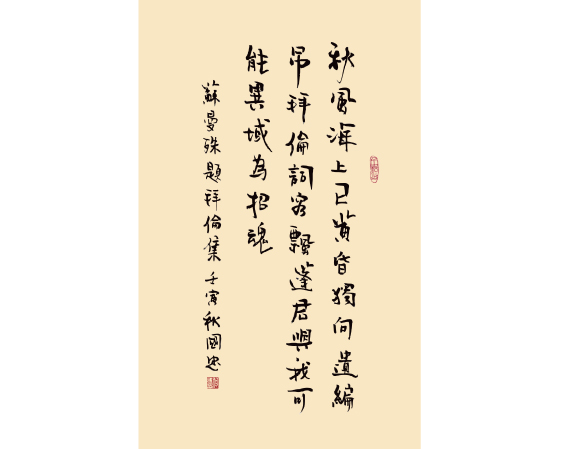 秋風海上已黃昏獨向遺編
吊拜倫詞客飄蓬君與我可
能異域為招魂
蘇曼殊題拜倫集 壬寅秋國忠